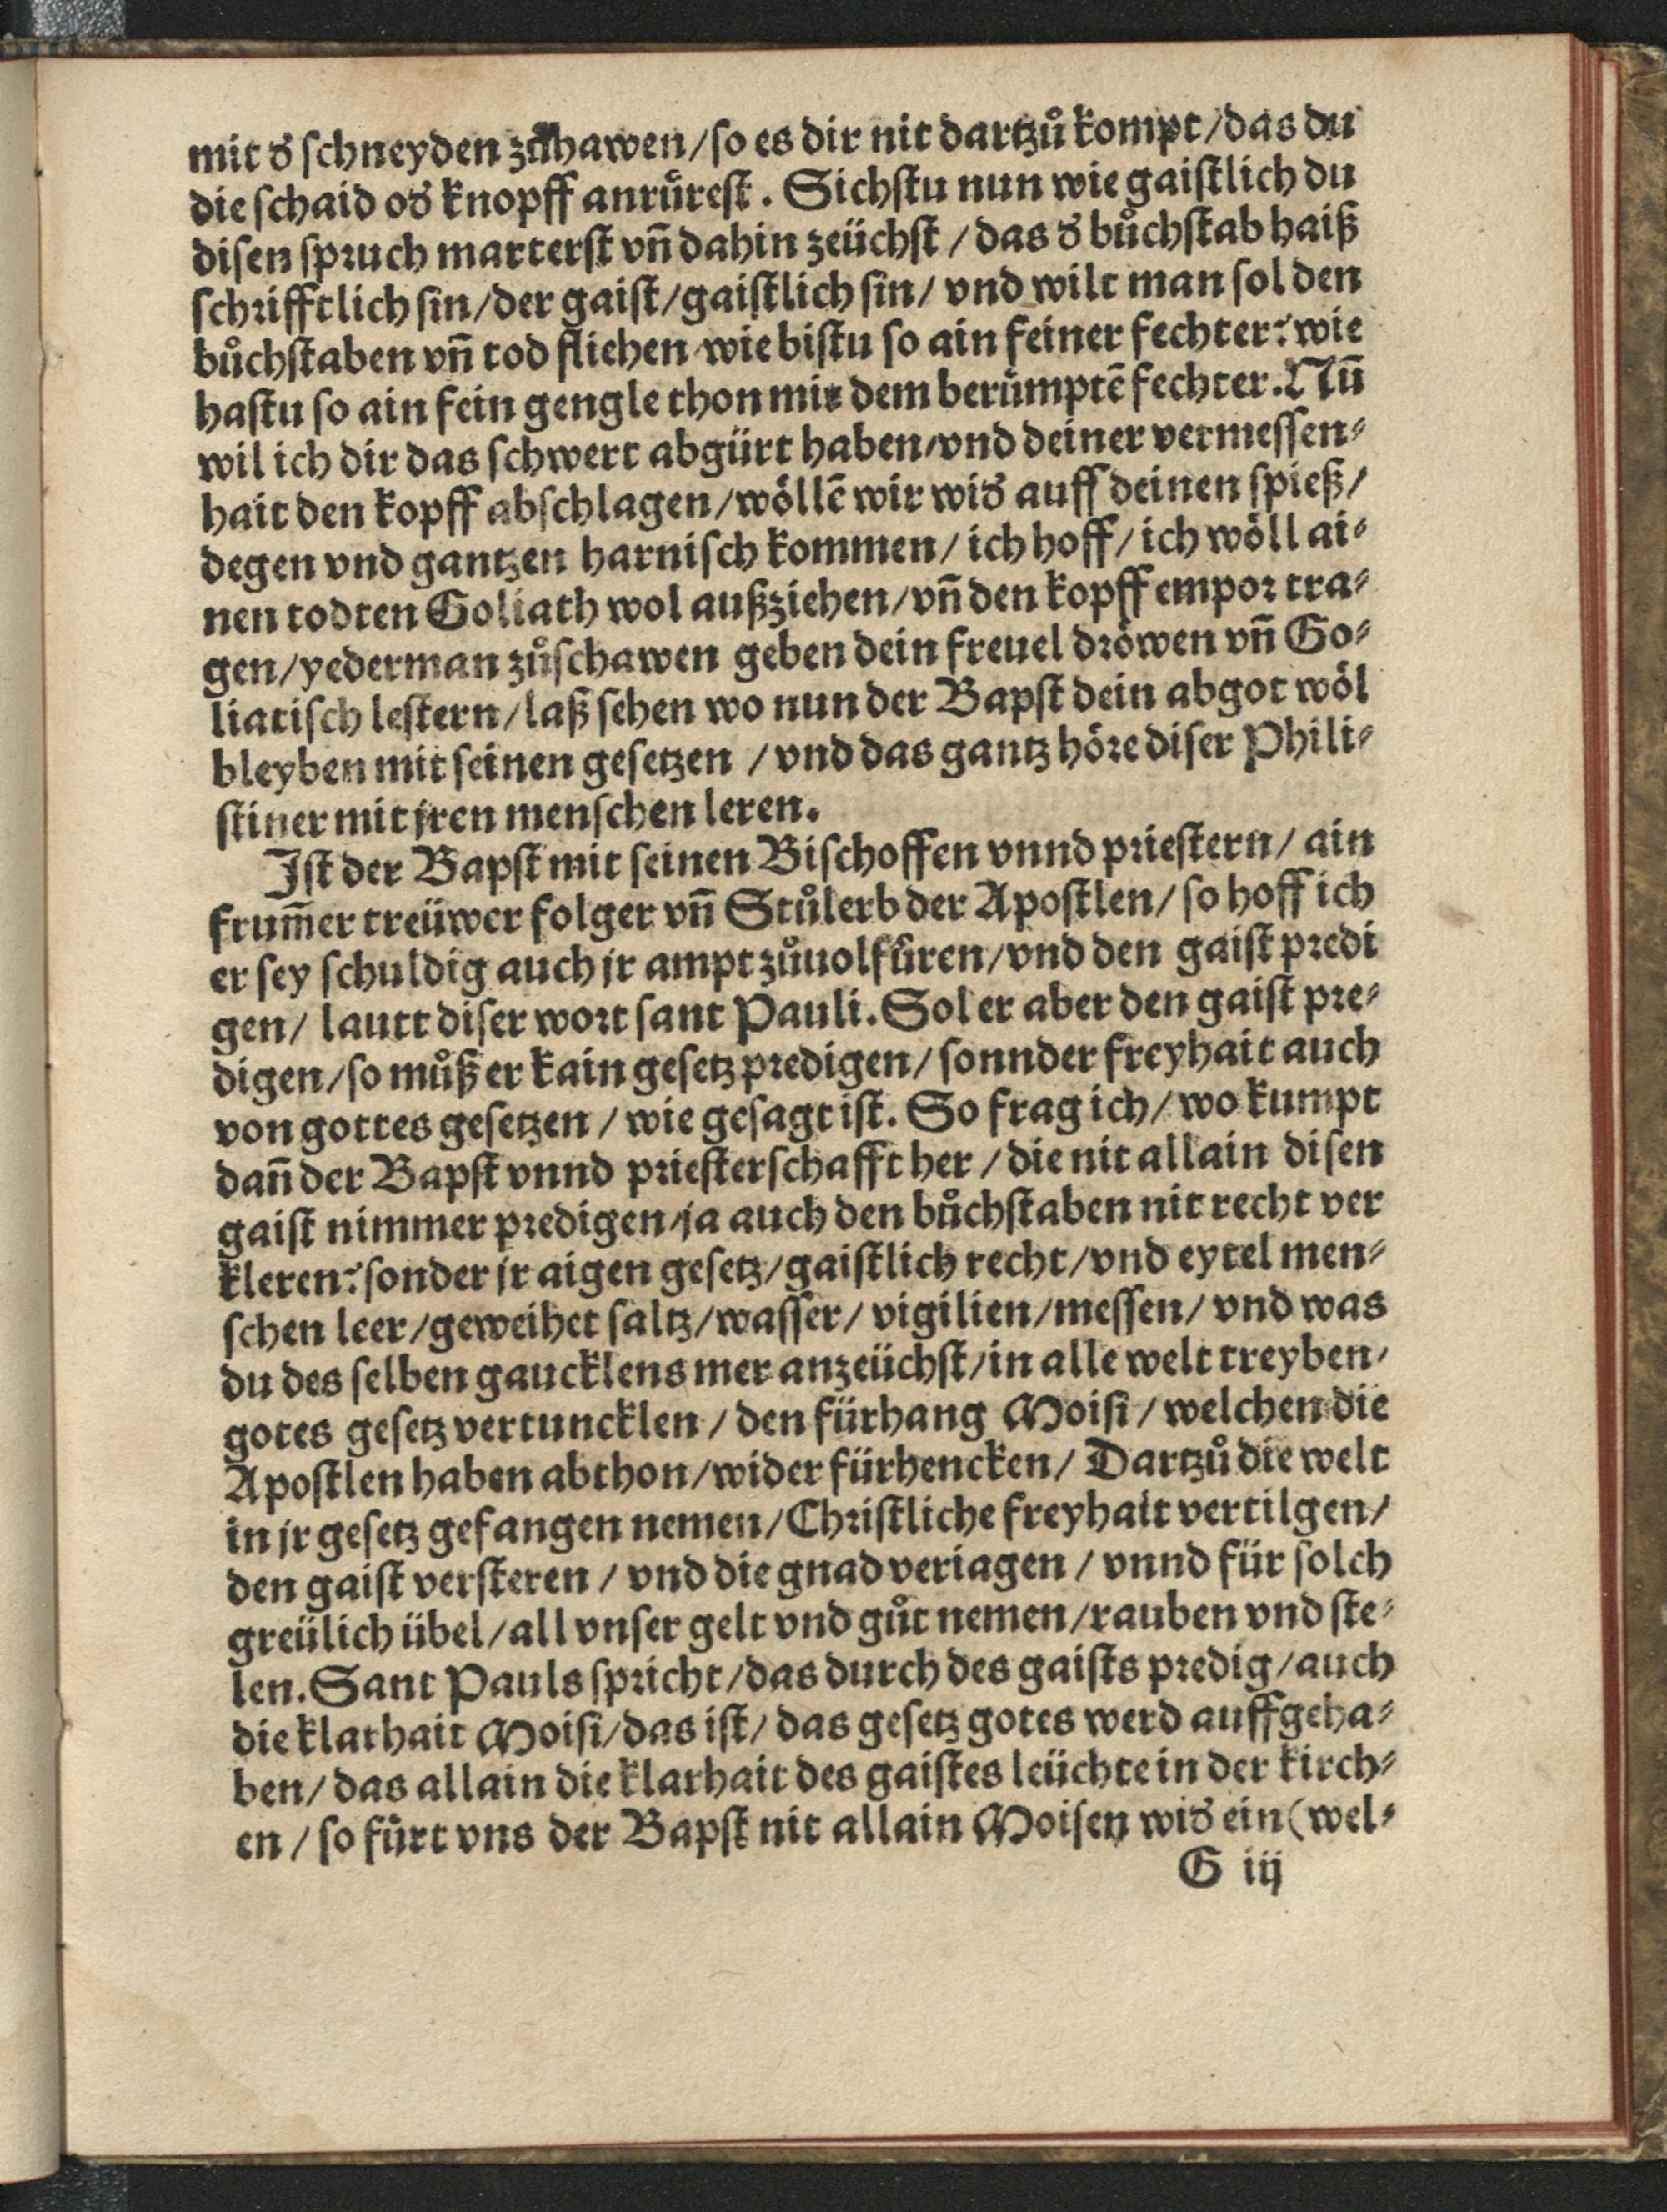 mit d̕ ſchneyden zuͦhawen/ſo es dir nit dartzuͦ kompt/das du
die ſchaid od̕ knopff anruͤreſt. Sichſtu nun wie gaiſtlich du
diſen ſpꝛuch marterſt vñ dahin zeüchſt/das d̕ buͦchſtab haiß
ſchꝛifftlich ſin/der gaiſt/gaiſtlich ſin/ vnd wilt man ſol den
buͦchſtaben vñ tod fliehen wie biſtu ſo ain feiner fechter? wie
haſtu ſo ain fein gengle thon mit dem beruͤmptē fechter. Nū
wil ich dir das ſchwert abgürt haben/vnd deiner vermeſſen⸗
hait den kopff abſchlagen/woͤllē wir wid̕ auff deinen ſpieß/
degen vnd gantzen harniſch kommen/ ich hoff/ ich woͤll ai⸗
nen todten Goliath wol außziehen/vñ den kopff empoꝛ tra⸗
gen/yederman zuͦſchawen geben dein freuel dꝛoͤwen vñ Go⸗
liatiſch leſtern/laß ſehen wo nun der Bapſt dein abgot woͤl
bleyben mit ſeinen geſetzen /vnd das gantz hoͤꝛe diſer Phili⸗
ſtiner mit jren menſchen leren.
Iſt der Bapſt mit ſeinen Biſchoffen vnnd pꝛieſtern/ ain
frum̄er treüwer folger vñ Stuͦlerb der Apoſtlen/ ſo hoff ich
er ſey ſchuldig auch jr ampt zuͦuolfuͤren/vnd den gaiſt pꝛedi
gen/ lautt diſer woꝛt ſant Pauli. Sol er aber den gaiſt pꝛe⸗
digen/ſo muͦß er kain geſetz pꝛedigen/ ſonnder freyhait auch
von gottes geſetzen/ wie geſagt iſt. So frag ich/ wo kumpt
dañ der Bapſt vnnd pꝛieſterſchafft her /die nit allain diſen
gaiſt nimmer pꝛedigen/ja auch den buͦchſtaben nit recht ver
kleren? ſonder jr aigen geſetz/gaiſtlich recht/vnd eytel men⸗
ſchen leer/geweihet ſaltz/waſſer/ vigilien/meſſen/ vnd was
du des ſelben gaucklens mer anzeüchſt/in alle welt treyben/
gotes geſetz vertuncklen/ den fürhang Moiſi/ welchen die
Apoſtlen haben abthon/wider fürhencken/ Dartzuͦ die welt
in jr geſetz gefangen nemen/Chꝛiſtliche freyhait vertilgen/
den gaiſt verſteren/ vnd die gnad veriagen/ vnnd für ſolch
greülich übel/all vnſer gelt vnd guͦt nemen/rauben vnd ſte⸗
len. Sant Pauls ſpꝛicht/das durch des gaiſts pꝛedig/auch
die klarhait Moiſi/das iſt/ das geſetz gotes werd auffgeha⸗
ben/ das allain die klarhait des gaiſtes leüchte in der kirch⸗
en/ ſo fuͤrt vns der Bapſt nit allain Moiſen wid̕ ein (wel⸗
G iij